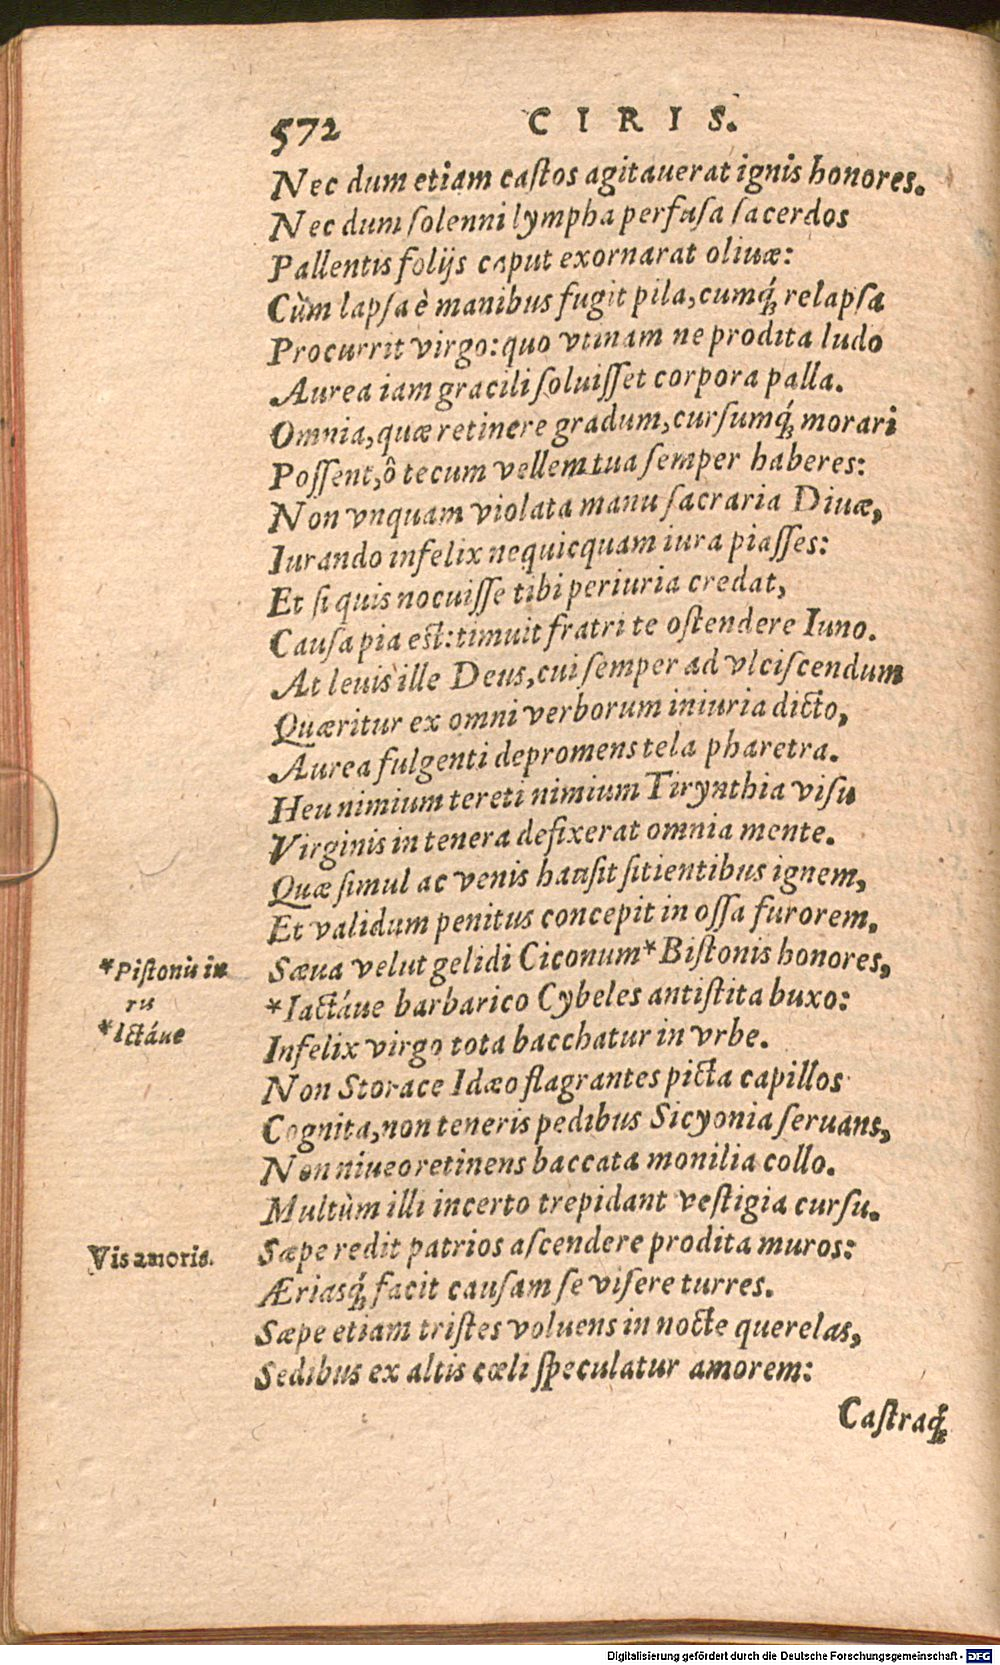 572 CIRIS.
Nec dum etiam castos agitauerat ignis honores.
Nec dum solenni lympha perfusa sacerdos
Pallentis folijs caput exornarat oliuæ:
Cùm lapsa è manibus fugit pila, cumq́ꝫ relapsa
Procurrit virgo: quo vtinam ne prodita ludo
Aurea iam gracili soluisset corpora palla.
Omnia, quæ retinere gradum, cursumq́ꝫ morari
Possent, ô tecum vellem tua semper haberes:
Non vnquam violata manu sacraria Diuæ,
Iurando infelix nequicquam iura piasses:
Et si quis nocuisse tibi periuria credat,
Causa pia est: timuit fratri te ostendere Iuno.
At leuis ille Deus, cui semper ad vlciscendum
Quæritur ex omni verborum iniuria dicto,
Aurea fulgenti depromens tela pharetra.
Heu nimium tereti nimium Tirynthia visu
Virginis in tenera defixerat omnia mente.
Quæ simul ac venis hausit sitientibus ignem,
Et validum penitus concepit in ossa furorem.
*Pistonis in
ru
*Ictáue
Sæua velut gelidi Ciconum *Bistonis honores,
*Iactáue barbarico Cybeles antistita buxo:
Infelix virgo tota bacchatur in vrbe.
Non Storace Idæo flagrantes picta capillos
Cognita, non teneris pedibus Sicyonia seruans,
Non niueo retinens baccata monilia collo.
Multùm illi incerto trepidant vestigia cursu.
Vis amoris.
Sæpe redit patrios ascendere prodita muros:
Æriasq́ꝫ facit causam se visere turres.
Sæpe etiam tristes voluens in nocte querelas,
Sedibus ex altis cœli speculatur amorem:
Castraq́ꝫ
Digitalisierung gefördert durch die Deutsche Forschungsgemeinschaft - DFG